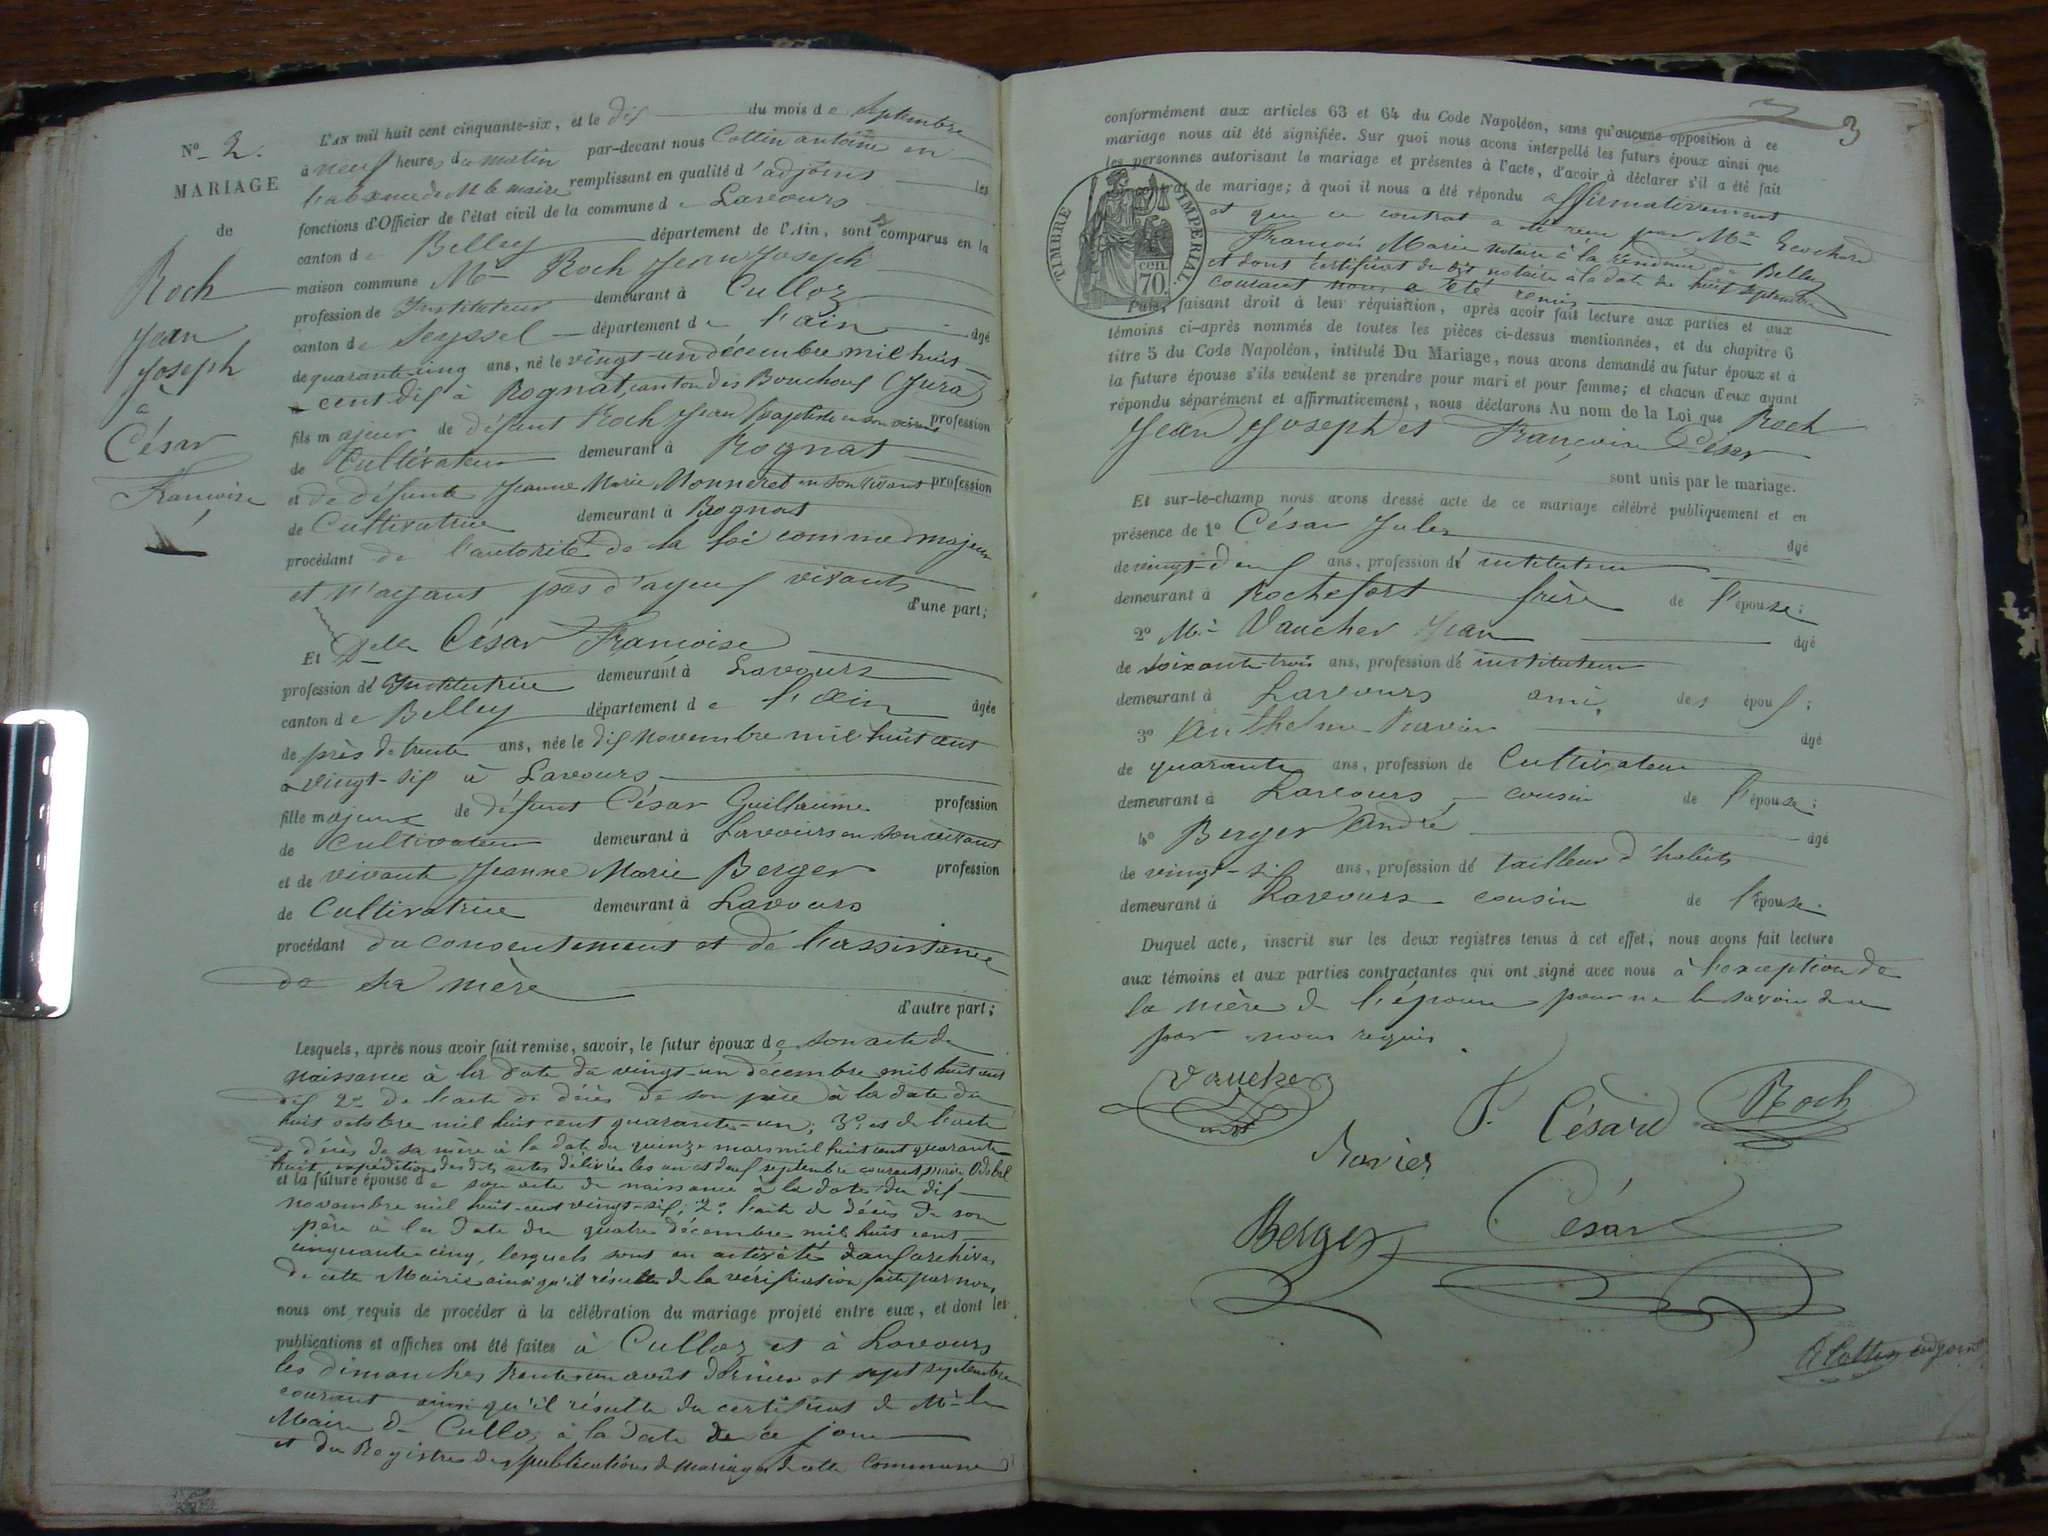 N° 2.
MARIAGE
de
Roch
Jean
Joseph
à
César
Françoise
L'AN mil huit cent cinquante-six, et le dix du mois de Septembre
à neuf heures du matin par-devant nous Collin antoine en
l'absence de M le maire remplissant en qualité d'adjoint les
fonctions d'Officier de l'état civil de la commune de Lavours
canton de Belley département de l'Ain, sont comparus en la
maison commune Mr Roch Jean Joseph
profession de Instituteur demeurant à Culloz
canton de Seyssel département de l'ain âgé
de quarante cinq ans, né le vingt-un décembre mil huit
cent dix à Rognat, canton des Bouchoux (Jura)
fils majeur de défunt Roch Jean Baptiste en son vivant profession
de Cultivateur demeurant à Rognat
et de défunte Jeanne Marie Monneret en son vivant profession
de Cultivatrice demeurant à Rognat
procédant de l'autorité de la loi comme majeur
et n'ayant pas d'ayeux vivants
d'une part;
Et Delle César Françoise
profession de Institutrice demeurant à Lavours
canton de Belley département de l'Ain âgée
de près de trente ans, née le dix novembre mil huit cent
vingt-six à Lavours
fille majeure de défunt César Guillaume profession
de Cultivateur demeurant à Lavours en son vivant
et de vivante Jeanne Marie Berger profession
de Cultivatrice demeurant à Lavours
procédant du consentement et de l'assistance
de sa mère
d'autre part;
Lesquels, après nous avoir fait remise, savoir, le futur époux de son acte de
naissance à la date du vingt-un décembre mil huit cent
dix 2° de l'acte de décès de son père à la date du
huit octobre mil huit cent quarante-un; 3° et de l'acte
de décès de sa mère à la date du quinze mars mil huit cent quarante
huit expéditions des dits actes délivrées les un et deux septembre courant
et la future épouse de son acte de naissance à la date du dix
novembre mil huit-cent vingt-six; 2° l'acte de décès de son
père à la date du quatre décembre mil huit cent
cinquante cinq, lesquels sont en aux archives
de cette Mairie ainsi qu'il résulte de la vérification faite par nous,
nous ont requis de procéder à la célébration du mariage projeté entre eux, et dont les
publications et affiches ont été faites à Culloz et à Lavours
les dimanches trente un août dernier et sept septembre
courant ainsi qu'il résulte du certificat de Mr le
Maire de Culloz à la date de ce jour
et du Registre des publications de mariage de cette Commune
3
conformément aux articles 63 et 64 du Code Napoléon, sans qu'aucune opposition à ce
mariage nous ait été signifiée. Sur quoi nous avons interpellé les futurs époux ainsi que
les personnes autorisant le mariage et présentes à l'acte, d'avoir à déclarer s'il a été fait
contrat de mariage; à quoi il nous a été répondu affirmativement
et que ce contrat a été reçu par Me
François Marie notaire à la résidence de Belley
et dont certificat du dit notaire à la date du huit septembre
courant nous a été remis
TIMBRE IMPERIAL
cen. 70.
Puis, faisant droit à leur réquisition, après avoir fait lecture aux parties et aux
témoins ci-après nommés de toutes les pièces ci-dessus mentionnées, et du chapitre 6
titre 5 du Code Napoléon, intitulé Du Mariage, nous avons demandé au futur époux et à
la future épouse s'ils veulent se prendre pour mari et pour femme; et chacun d'eux ayant
répondu séparément et affirmativement, nous déclarons Au nom de la Loi que Roch
Jean Joseph et Françoise César
sont unis par le mariage.
Et sur-le-champ nous avons dressé acte de ce mariage célébré publiquement et en
présence de 1° César Jules âgé
de vingt-deux ans, profession d'instituteur
demeurant à Rochefort frère de l'épouse;
2° Mr Vaucher Jean âgé
de soixante-trois ans, profession d'instituteur
demeurant à Lavours ami, des époux;
3° Anthelme Ravier âgé
de quarante ans, profession de Cultivateur
demeurant à Lavours cousin de l'épouse;
4° Berger André âgé
de vingt-six ans, profession de tailleur d'habits
demeurant à Lavours cousin de l'épouse.
Duquel acte, inscrit sur les deux registres tenus à cet effet, nous avons fait lecture
aux témoins et aux parties contractantes qui ont signé avec nous à l'exception de
la mère de l'épouse pour ne le savoir de ce
par nous requis
Vaucher
F. César
Roch
Ravier
Berger
César
A Collin adjoint